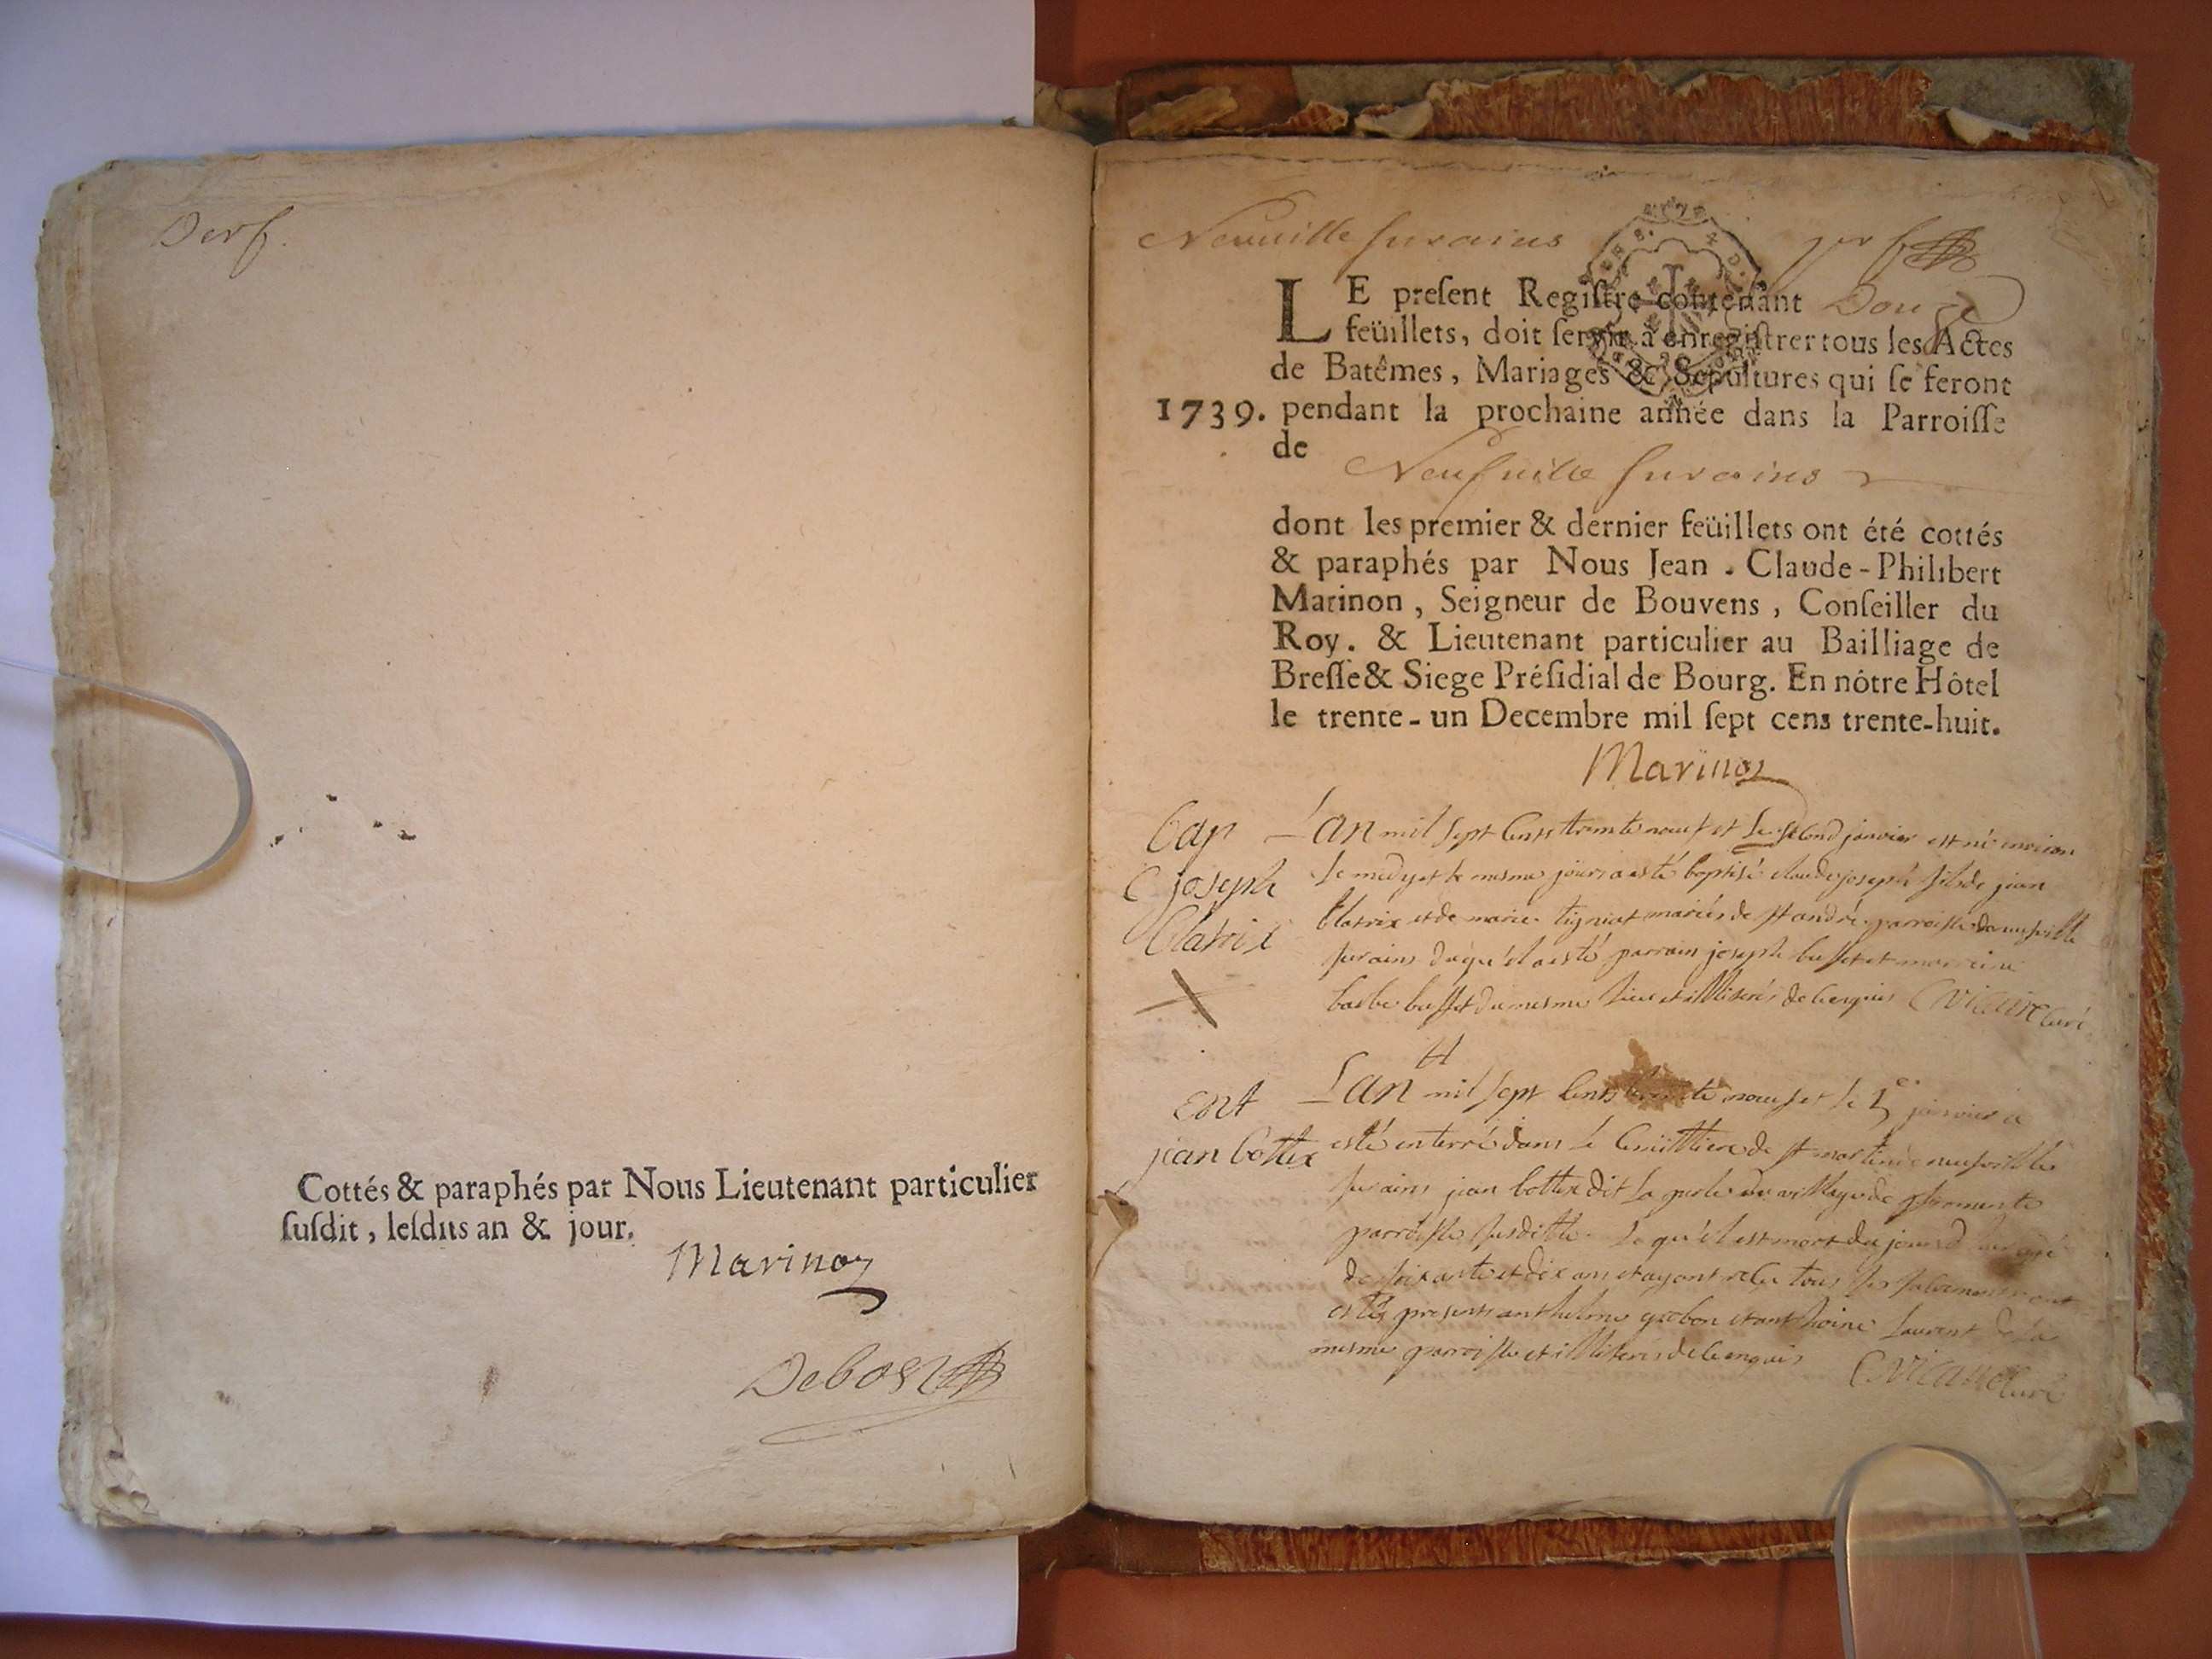 Derf.
Cottés & paraphés par Nous Lieutenant particulier
ſuſdit, leſdits an & jour.
Marinon
Debost
Neuuille ſurains
per f
LE preſent Regiſtre contenant Douze
feüillets, doit ſervir à enregiſtrer tous les Actes
de Batêmes, Mariages & Sepultures qui ſe feront
1739. pendant la prochaine année dans la Parroiſſe
de Neufuille ſurains
dont les premier & dernier feüillets ont été cottés
& paraphés par Nous Jean-Claude-Philibert
Marinon, Seigneur de Bouvens, Conſeiller du
Roy. & Lieutenant particulier au Bailliage de
Breſſe & Siege Préſidial de Bourg. En nôtre Hôtel
le trente-un Decembre mil ſept cens trente-huit.
Marinon
Bap
C joseph
Blatrix
L'an mil sept cents trente noeuf et le second janvier est né environ
le midy et le mesme jour a esté baptisé claude joseph fils de jean
blatrix et de marie tigniat mariés de st andré parroisse de neufville
surains duquel a esté parrain joseph buffet et marreine
barbe buffet du mesme lieu et illiterés de ce enquis C vicaire curé
Ent
jean bottex
L'an mil sept cents trente noeuf et le 5e janvier a
esté enterré dans le cemittiere de st martin de neufville
surains jean bottex dit la perle du village de fromente
parroisse susditte lequel est mort du jour d'hier agé
de soixante et dix ans et ayant receu tous ses sacrements ont
estés presents anthelme grobon et anthoine laurent de la
mesme parroisse et illiterés de ce enquis C vicaire curé